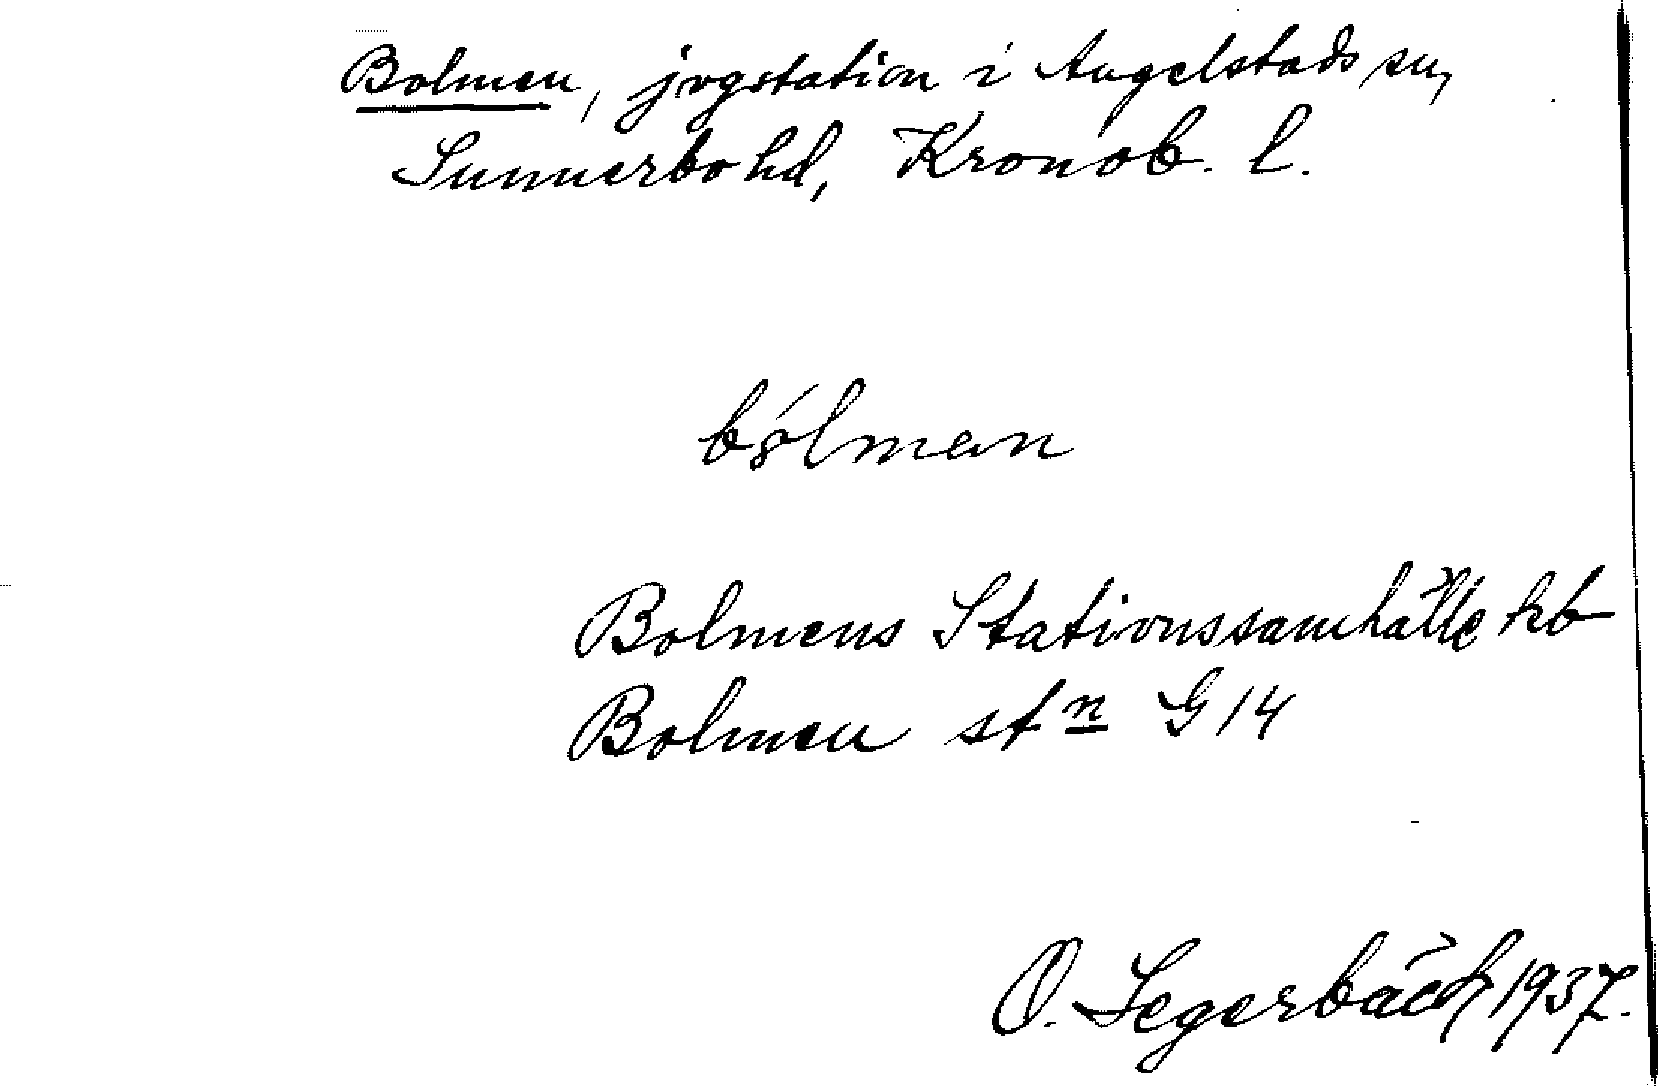 Bolmen, jvgstation i Angelstads sn,
Sunnerbo hd, Kronob. l.
bólmen
Bolmens Stationssamhälle kb
Bolmen stn G 14
O. Segerbäck 1937.